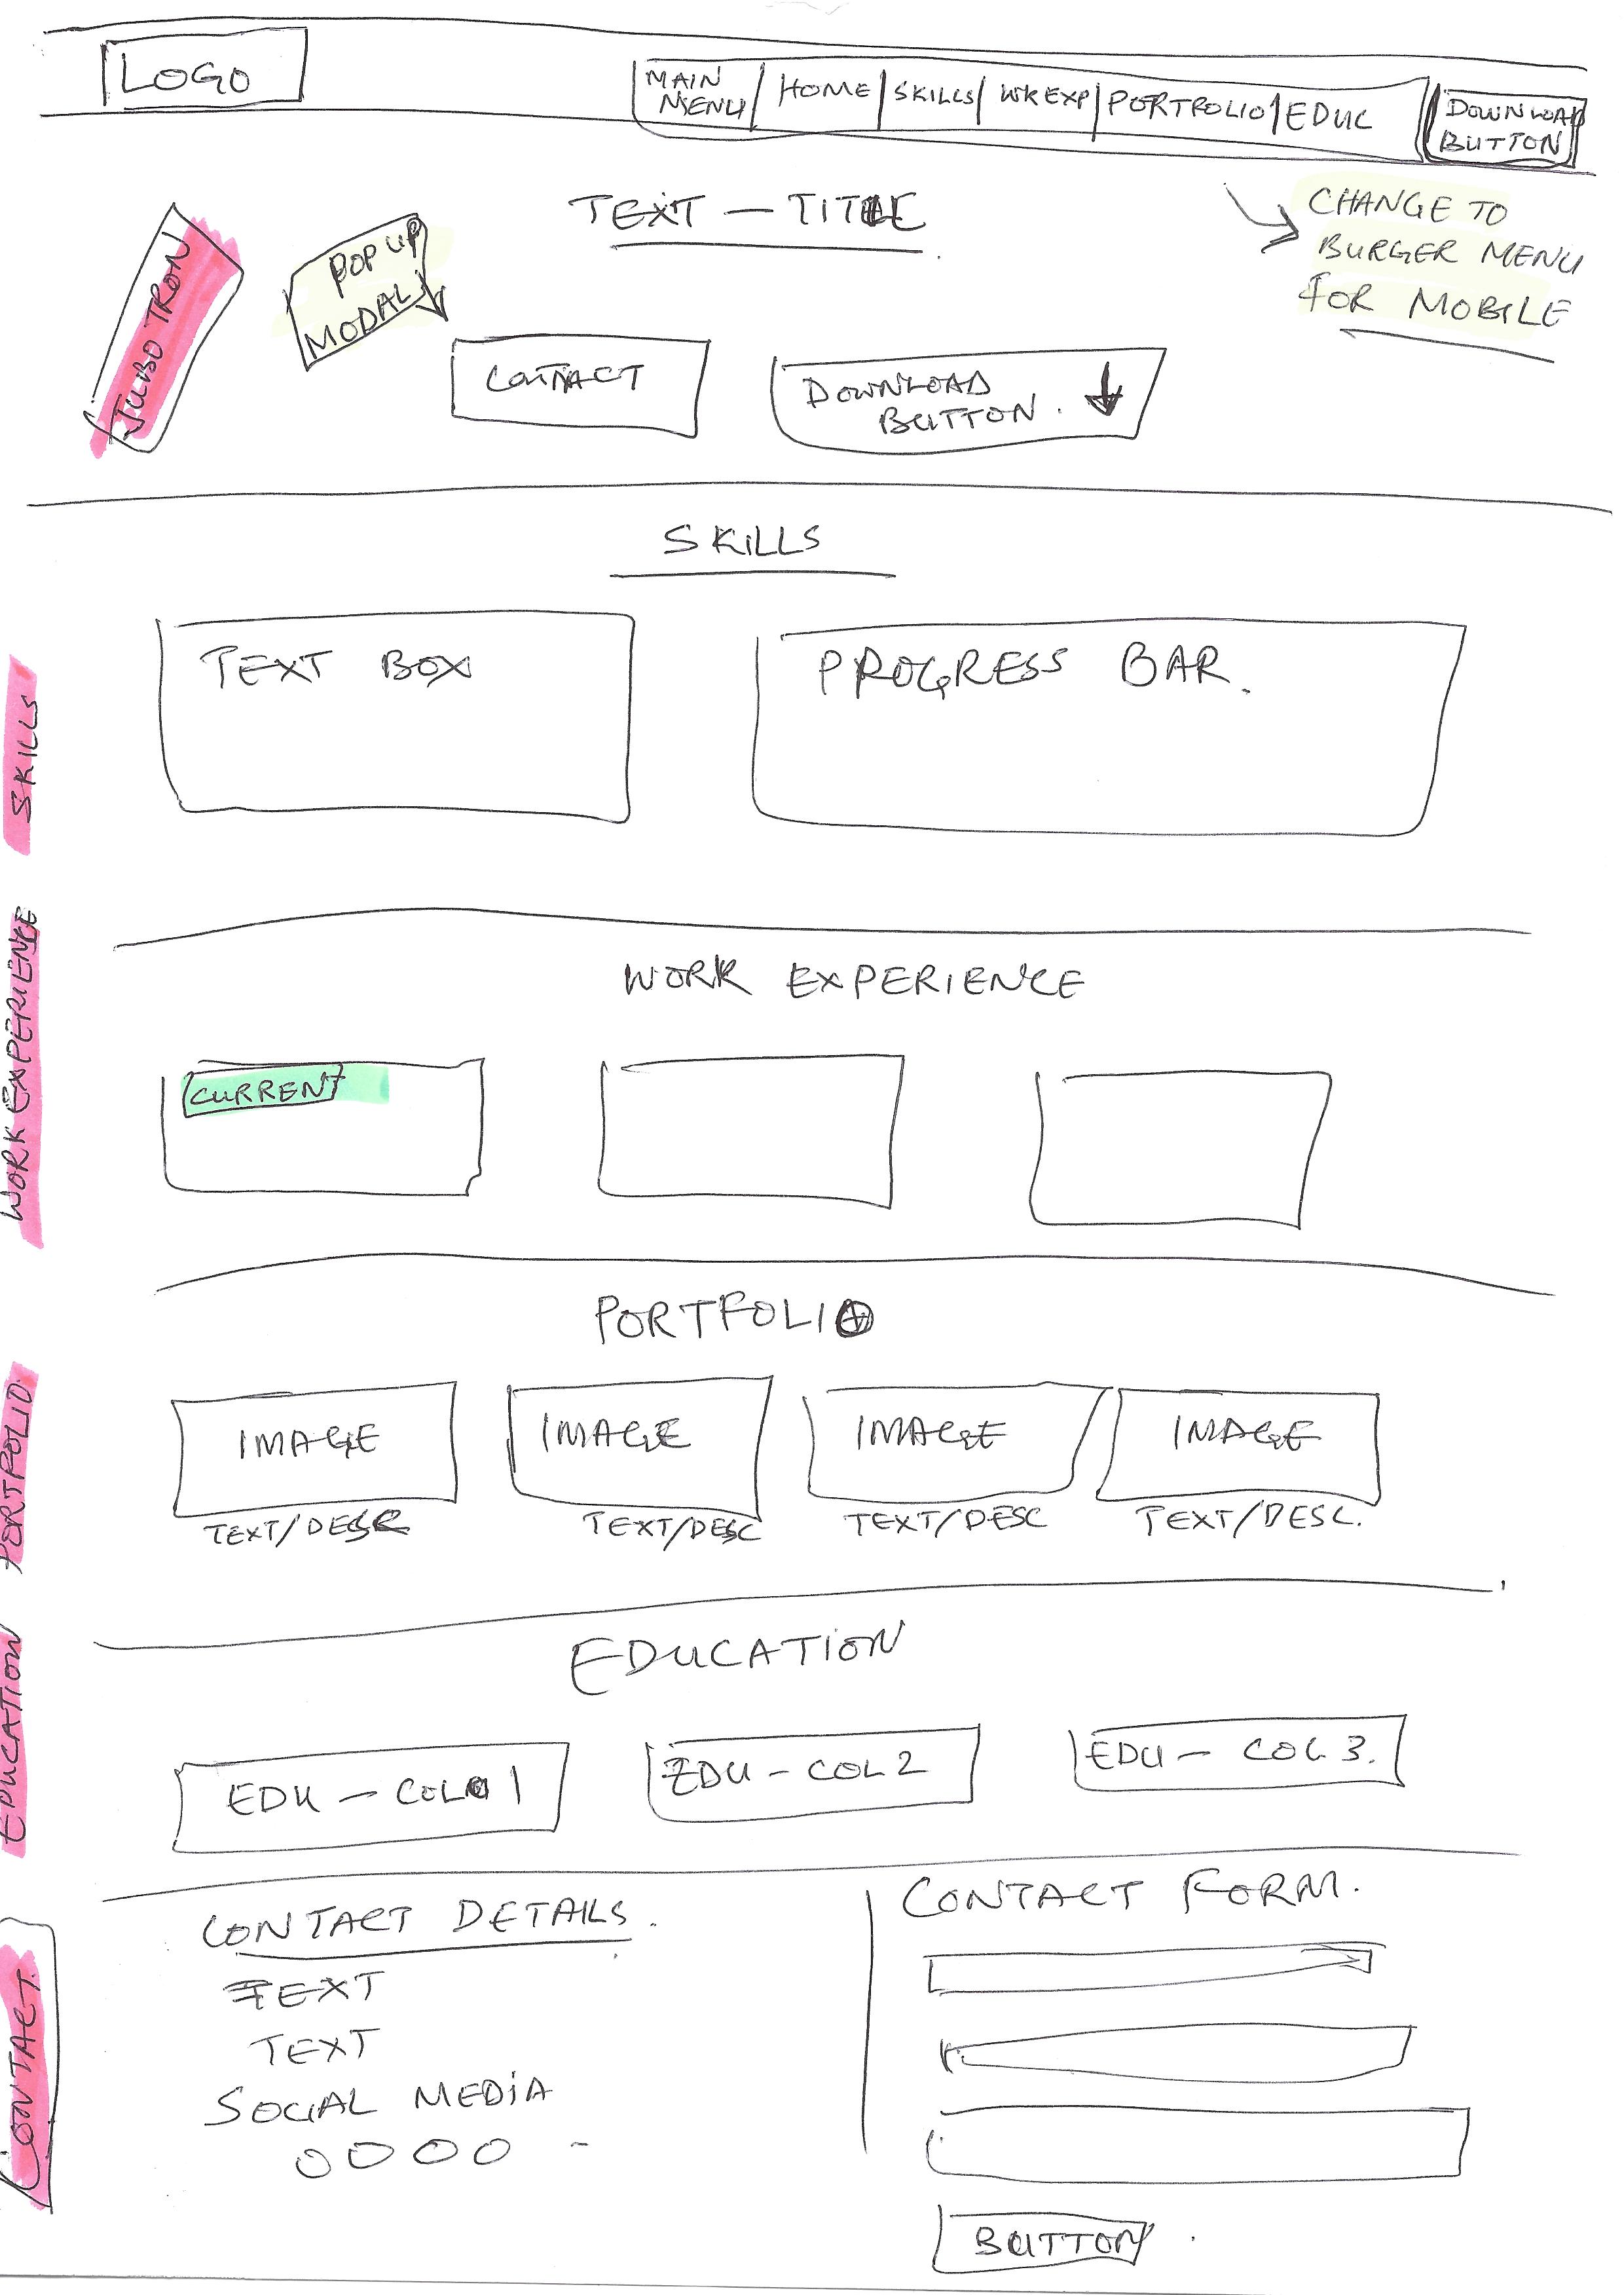 LOGO
MAIN MENU
HOME
SKILLS
WK EXP
PORTFOLIO
EDUC
DOWNLOAD
BUTTON
TEXT - TITLE
CHANGE TO
BURGER MENU
FOR MOBILE
JUBO TRON
POP UP
MODAL
CONTACT
DOWNLOAD
BUTTON.
SKILLS
SKILLS
TEXT BOX
PROGRESS BAR.
WORK EXPERIENCE
WORK EXPERIENCE
CURRENT
PORTFOLIO
PORTFOLIO
IMAGE
IMAGE
IMAGE
IMAGE
TEXT/DESC
TEXT/DESC
TEXT/DESC
TEXT/DESC.
EDUCATION
EDUCATION
EDU - COL 1
EDU - COL 2
EDU - COL 3.
CONTACT.
CONTACT DETAILS.
TEXT
TEXT
SOCIAL MEDIA
CONTACT FORM.
BUTTON